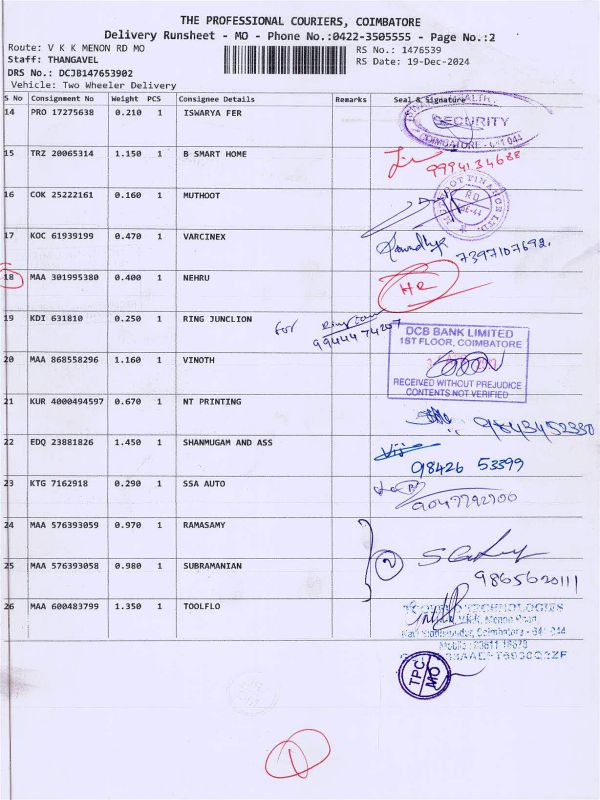 THE PROFESSIONAL COURIERS, COIMBATORE
Delivery Runsheet - MO - Phone No.:0422-3505555 - Page No.:2
Route: V K K MENON RD MO
RS No.: 1476539
Staff: THANGAVEL
RS Date: 19-Dec-2024
DRS No.: DCJB147653902
Vehicle: Two Wheeler Delivery
S No Consignment No Weight PCS Consignee Details Remarks Seal & Signature
14 PRO 17275638 0.210 1 ISWARYA FER
SECURITY
COIMBATORE - 641 044
15 TRZ 20065314 1.150 1 B SMART HOME
9994134688
16 COK 25222161 0.160 1 MUTHOOT
17 KOC 61939199 0.470 1 VARCINEX
7397107692.
18 MAA 301995380 0.400 1 NEHRU
HR
19 KDI 631810 0.250 1 RING JUNCLION
for
99444 74207
DCB BANK LIMITED
1ST FLOOR, COIMBATORE
RECEIVED WITHOUT PREJUDICE
CONTENTS NOT VERIFIED
20 MAA 868558296 1.160 1 VINOTH
21 KUR 4000494597 0.670 1 NT PRINTING
9843452330
22 EDQ 23881826 1.450 1 SHANMUGAM AND ASS
98426 53399
23 KTG 7162918 0.290 1 SSA AUTO
9047792700
24 MAA 576393059 0.970 1 RAMASAMY
2
25 MAA 576393058 0.980 1 SUBRAMANIAN
9865620111
26 MAA 600483799 1.350 1 TOOLFLO
TECHNOLOGIES
Coimbatore - 641 044
TPC
MO
1